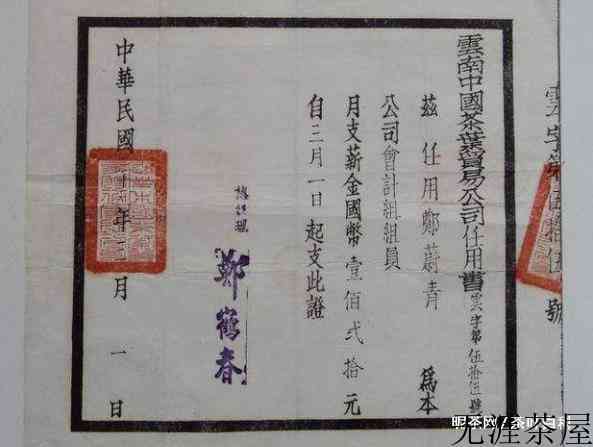 雲字第伍拾伍號
雲南中國茶葉貿易公司任用書 雲字第伍拾伍號
茲任用鄭蔚青 為本
公司會計組組員
月支薪金國幣壹佰弍拾元
自三月一日起支此證
總經理 鄭鶴春
中華民國 十年 月一日
无涯茶屋